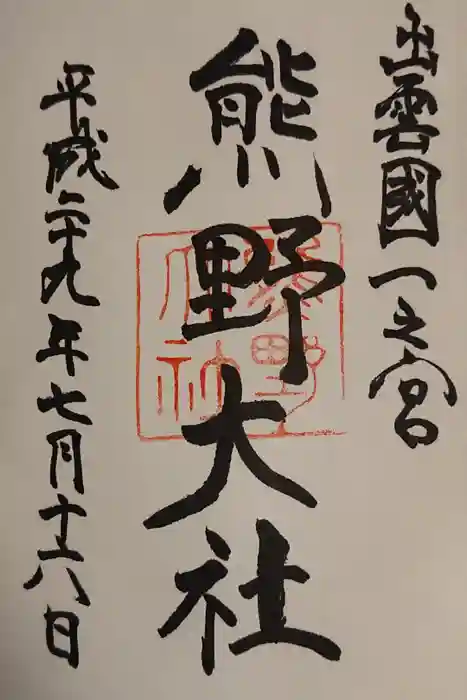 出雲國一之宮
熊野大社
熊野大社
平成二十九年七月十六日